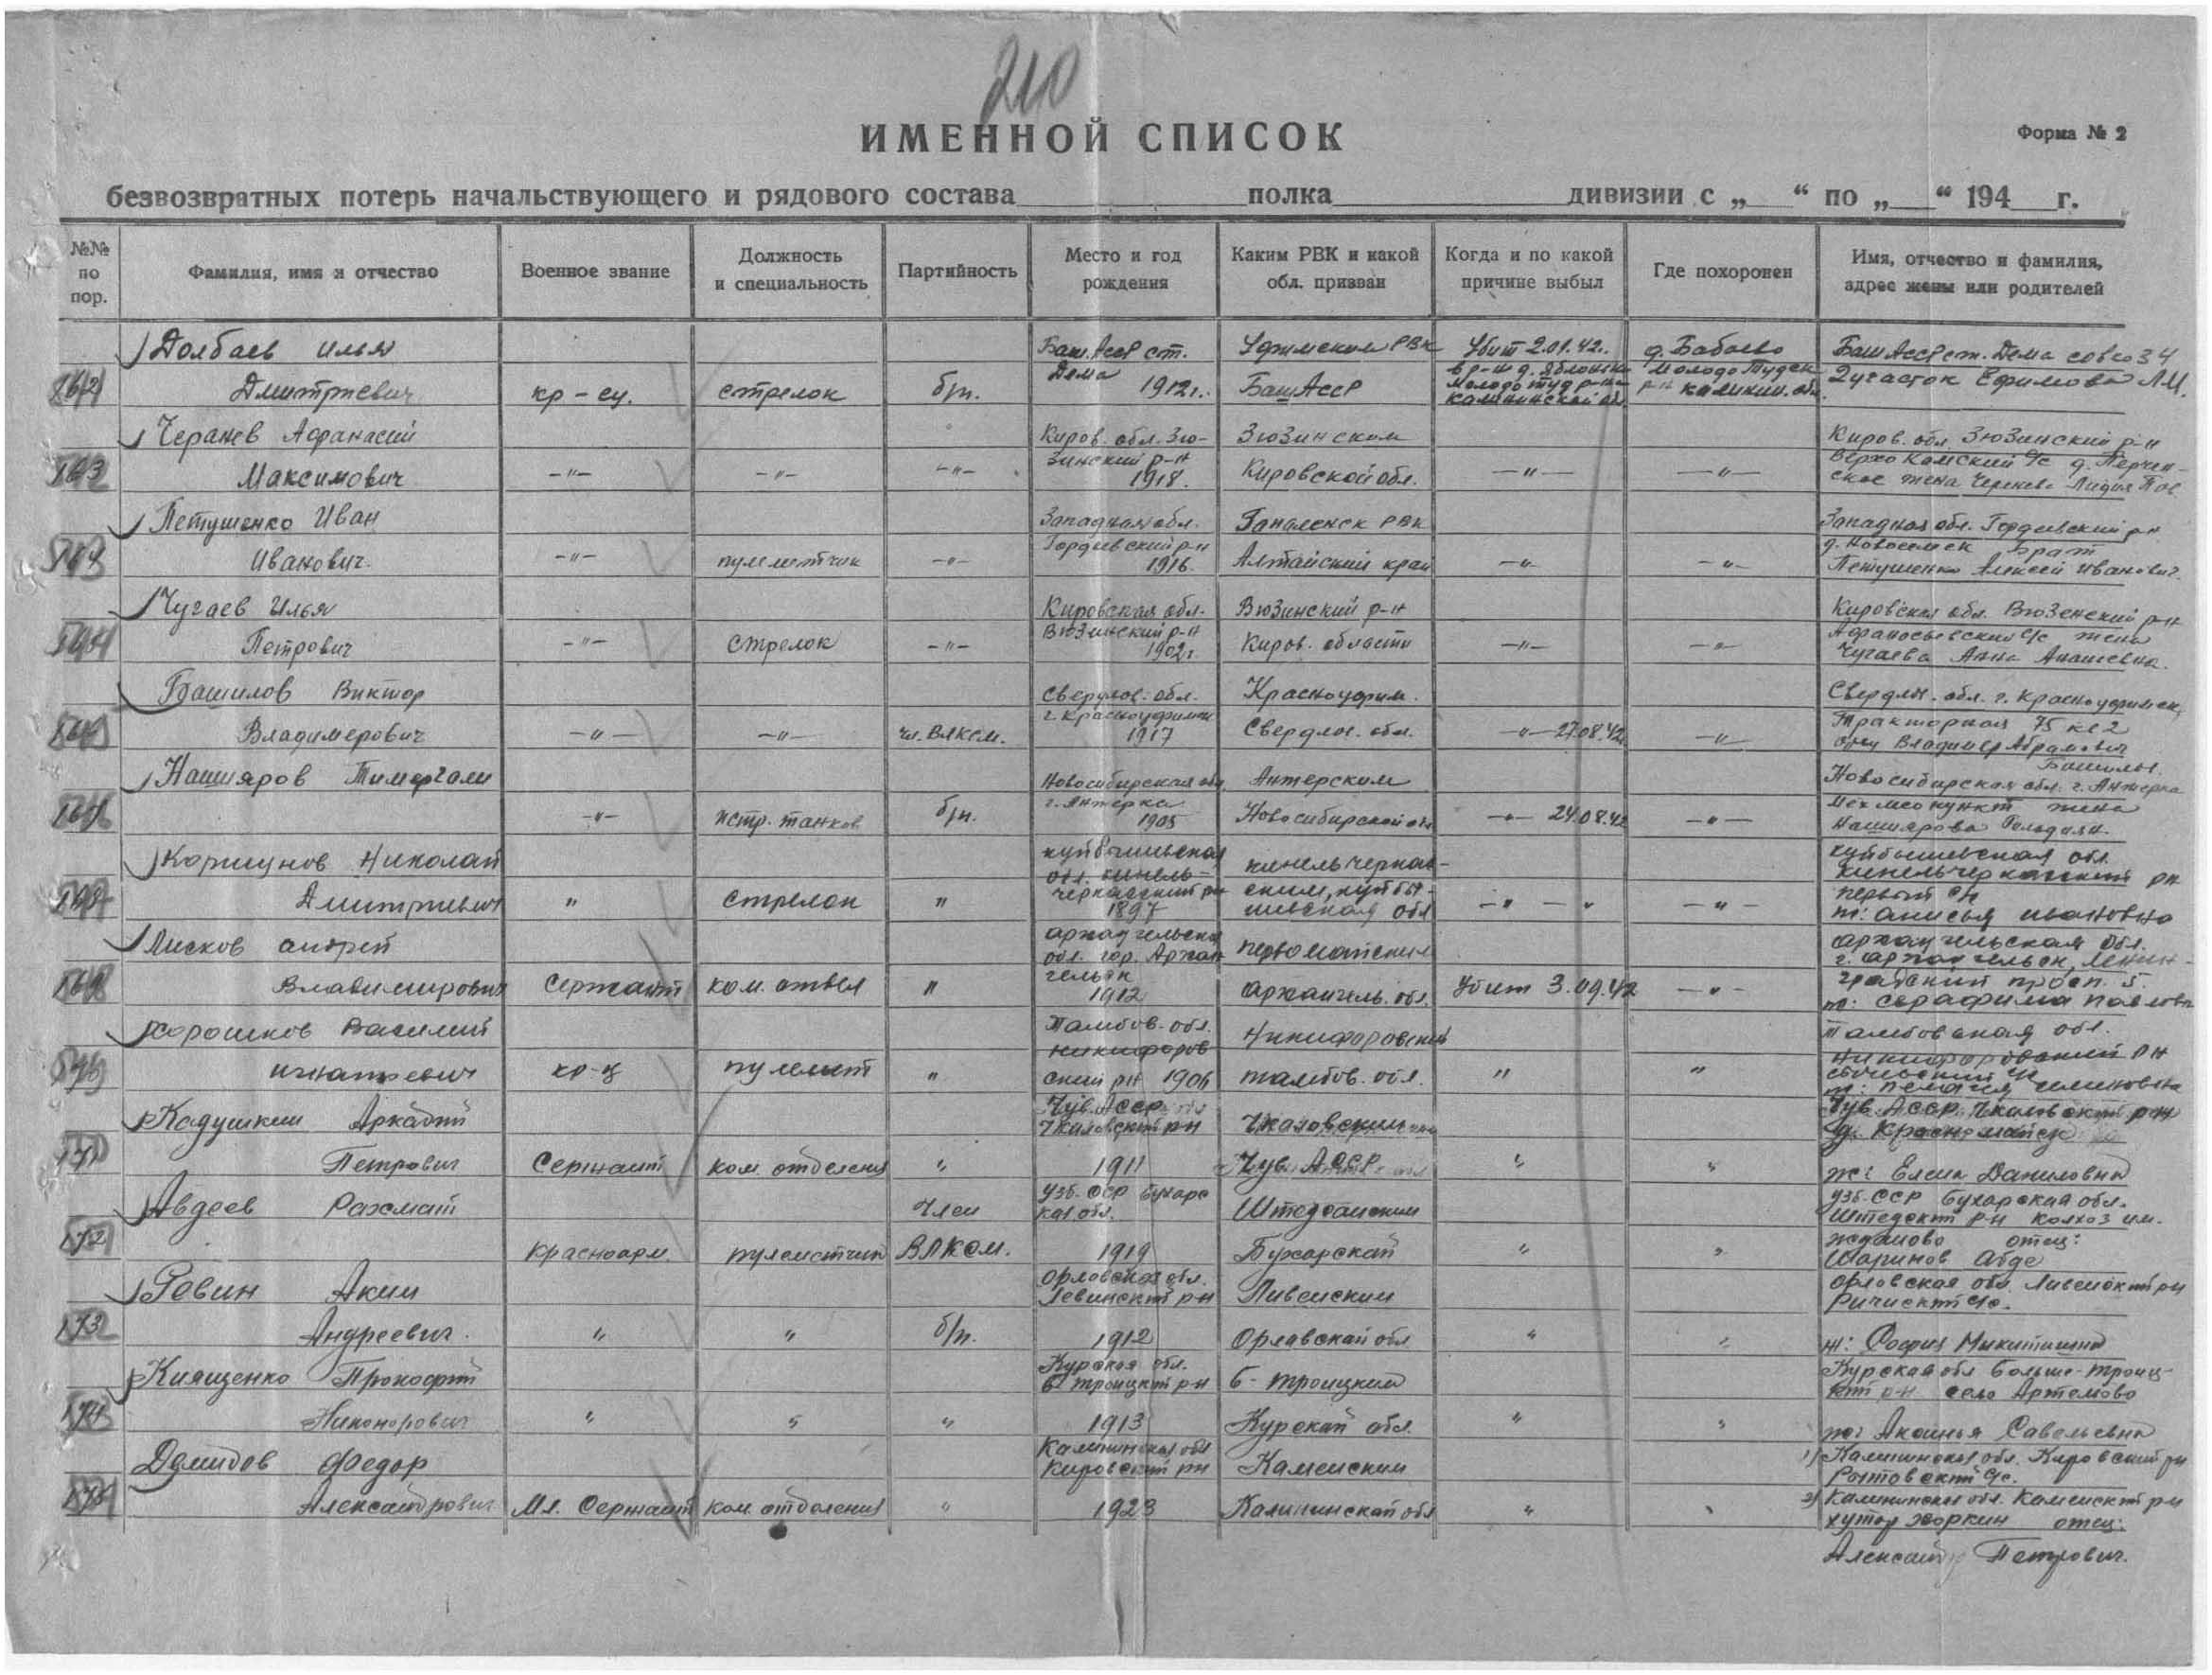 210
ИМЕННОЙ СПИСОК
Форма № 2
безвозвратных потерь начальствующего и рядового состава полка дивизии с „ “ по „ “ 194 г.
№№ по пор.
Фамилия, имя и отчество
Военное звание
Должность и специальность
Партийность
Место и год рождения
Каким РВК и какой обл. призван
Когда и по какой причине выбыл
Где похоронен
Имя, отчество и фамилия, адрес жены или родителей
Долбаев Илья
Баш. АССР ст. Уфимским РВК Убит 2.01.42. д. Бабаево БашАССР ст. Дема совхоз 4
Дмитриевич кр-ец. стрелок б/п. Дема 1912г. БашАССР в р-не д. Молодо Туд р-на Калининской обл. Молодо Туден р-н калинин. обл. 2 участок Ефимова Л М.
Черанев Афанасий Киров. обл. Зю- Зюзинским Киров. обл. Зюзинский р-н
Максимович -"- -"- -"- зинский р-н 1918. Кировской обл. -"- -"- Верхо Камский с/с д. жена Лидия
Петушенко Иван Западная обл. РВК Западная обл. Гордеевский р-н
Иванович -"- пулеметчик -"- Гордеевский р-н 1916 Алтайский край -"- -"- д. Новоселиск брат Петушенко Алексей Иванович.
Чугаев Илья Кировская обл. Вюзинский р-н Кировская обл. Вюзенский р-н
Петрович -"- стрелок -"- Вюзинский р-н 1902г. Киров. области -"- -"- Афаносьевский с/с жена Чугаева Анна
Башилов Виктор Свердлов. обл. Красноуфим. Свердлов. обл. г. Красноуфимск,
Владимерович -"- -"- чл. ВЛКСМ. г. Красноуфимск 1917 Свердлов. обл. -"- 27.08.42 -"- Тракторная 75 кв 2 отец Владимер Абрамович Башилов
Нашияров Тимергали Новосибирская обл. Анжерским Новосибирская обл. г. Анжерка
-"- истр. танков б/п. г. Анжерка 1905 Новосибирской обл -"- 24.08.42 -"- жена Нашиярова
Коршунов Николай куйбышевская обл. кинель- кинельчеркас- куйбышевская обл. кинельчеркасский рн
Дмитриевич " стрелок " черкасский рн 1897 ским, куйбы- шевская обл -"- -"- первый с/с ж: анисья ивановна
Лисков андрей архангельская обл. гор. Архан первомайским архангельская обл. г. архангельск, Ленин-
Владимирович Сержант ком. отдел " гельск 1912 архангель. обл. Убит 3.09.42 -"- градский просп. 5. ж: серафима павловн
Хорошков Василий Тамбов. обл. никифоров никифоровский тамбовская обл. никифоровский рн
игнатьевич кр-ц пулемет " ский рн 1906 тамбов. обл. " " ж: пелагея семеновна
Кадушкин Аркадий Чув. АССР Чкаловский р-н Чкаловским Чув. АССР. Чкаловский р-н д. Красномайск
Петрович Сержант ком. отделения " 1911 Чув. АССР " " ж: Елена Даниловна
Авдеев Рахмат Член Узб. ССР Бухарс кая обл. Узб. ССР Бухарская обл. р-н колхоз им.
Красноарм. пулеметчик ВЛКСМ. 1919 Бухарской " " жданова отец: Шаринов Абде
Ревин Аким Орловская обл. Левинский р-н Ливенским Орловская обл Ливенский рн
Андреевич. " " б/п. 1912 Орлавской обл " " ж: София Микитишна
Киященко Прокофий Курская обл. б троицкий р-н б-троицким Курская обл больше-троиц- кий р-н село Артемово
Никонорович " " " 1913 Курской обл. " " ж: Аксинья Савельевна
Демидов Федор Калининская обл Кировский рн Каменским 1) Калининская обл. Кировский рн Рантовский с/с.
Александрович Мл. Сержант ком. отделения " 1923 Калининской обл " " 2) Калининская обл. Каменский р-н хутор Жоркин отец:
Александр Петрович.